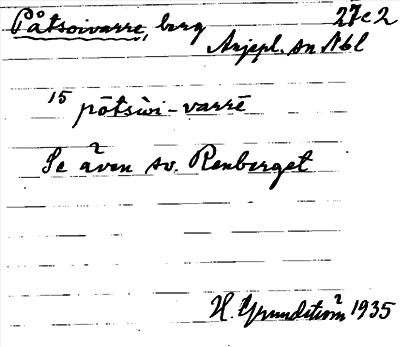 Påtsoivarre, berg 27c2
Arjepl. sn Nbl
15 pōtsùi-varrē
Se även sv. Renberget
H. Grundström 1935